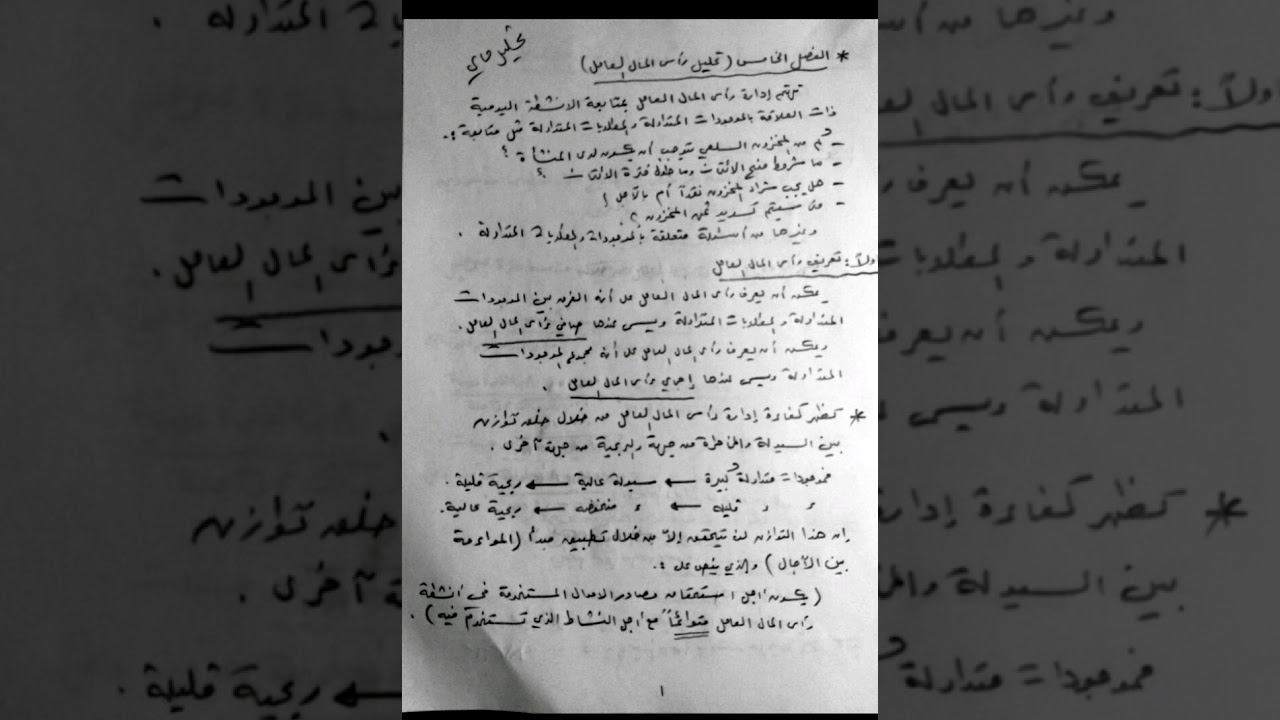 تحليل مالي
* الفصل الخامس (تحليل رأس المال العامل)
تهتم إدارة رأس المال العامل بمتابعة الأنشطة اليومية
ذات العلاقة بالموجودات المتداولة والمطلوبات المتداولة مثل متابعة :.
- كم من المخزون السلعي يتوجب أن يكون لدى المنشأة ؟
- ما شروط منح الائتمان وما طول فترة الائتمان ؟
- هل يجب شراء المخزون نقداً أم بالآجل ؟
- متى سيتم تسديد ثمن المخزون ؟
وغيرها من أسئلة متعلقة بالموجودات والمطلوبات المتداولة .
أولاً : تعريف رأس المال العامل
يمكن أن يعرف رأس المال العامل على أنه الفرق بين الموجودات
المتداولة والمطلوبات المتداولة ويسمى عندها صافي رأس المال العامل .
ويمكن أن يعرف رأس المال العامل على أنه مجموع الموجودات
المتداولة ويسمى عندها إجمالي رأس المال العامل .
* تظهر كفاءة إدارة رأس المال العامل من خلال خلق توازن
بين السيولة والمخاطرة من جهة والربحية من جهة أخرى .
فموجودات متداولة كبيرة ← سيولة عالية ← ربحية قليلة .
ء ء قليلة ← ء منخفضة ← ربحية عالية.
إن هذا التوازن لن يتحقق إلا من خلال تطبيق مبدأ (المواءمة
بين الآجال) والذي ينص على :.
(يكون أجل استحقاق مصادر الأموال المستخدمة في أنشطة
رأس المال العامل متوائماً مع أجل النشاط الذي تستخدم فيه) .
١